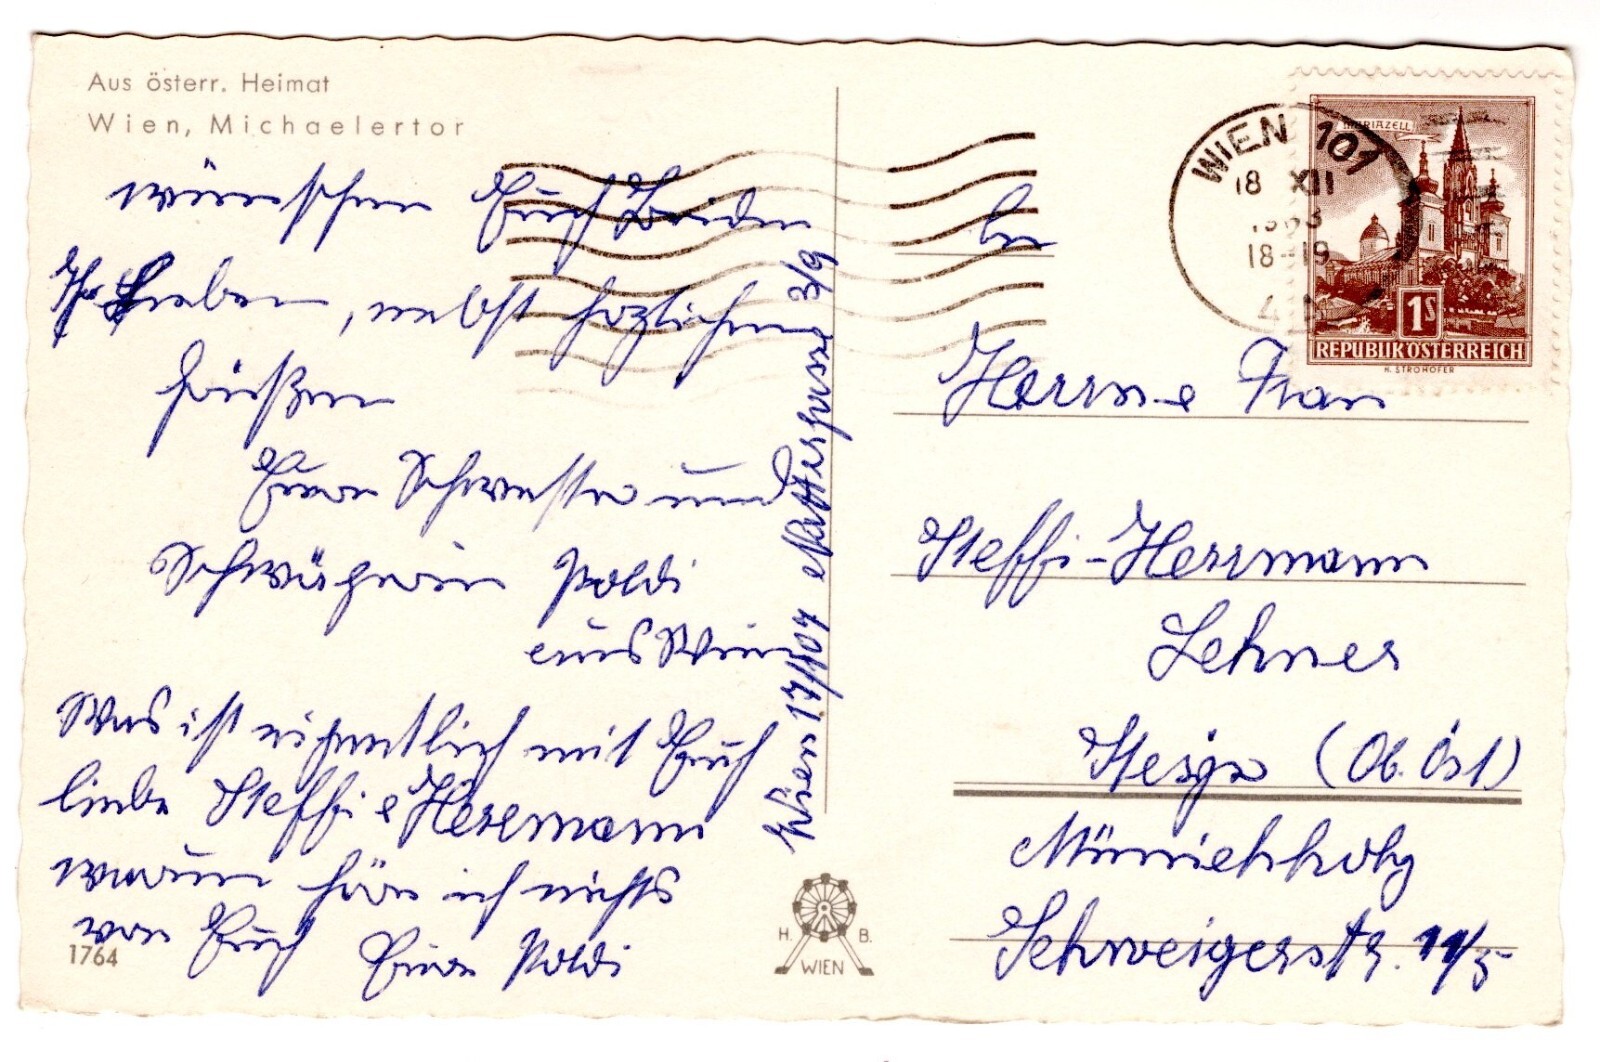 Aus österr. Heimat
Wien, Michaelertor
wünschen Euch Beiden
Ihr Lieben, nebst herzlichen
Grüßen
Eure Schwester und
Schwägerin Poldi
aus Wien
Was ist eigentlich mit Euch
liebe Steffi e Herrmann
warum höre ich nichts
von Euch Eure Poldi
1764
Wien 17/107 Nattergasse 3/9
H. B.
WIEN
WIEN 101
18 XII
1963
18-19
MARIAZELL
1S
REPUBLIK ÖSTERREICH
H. STROHOFER
An
Herrn e Frau
Steffi-Herrmann
Lehner
Steyr (Ob. Öst)
Münichholz
Schweigerstr. 11/5